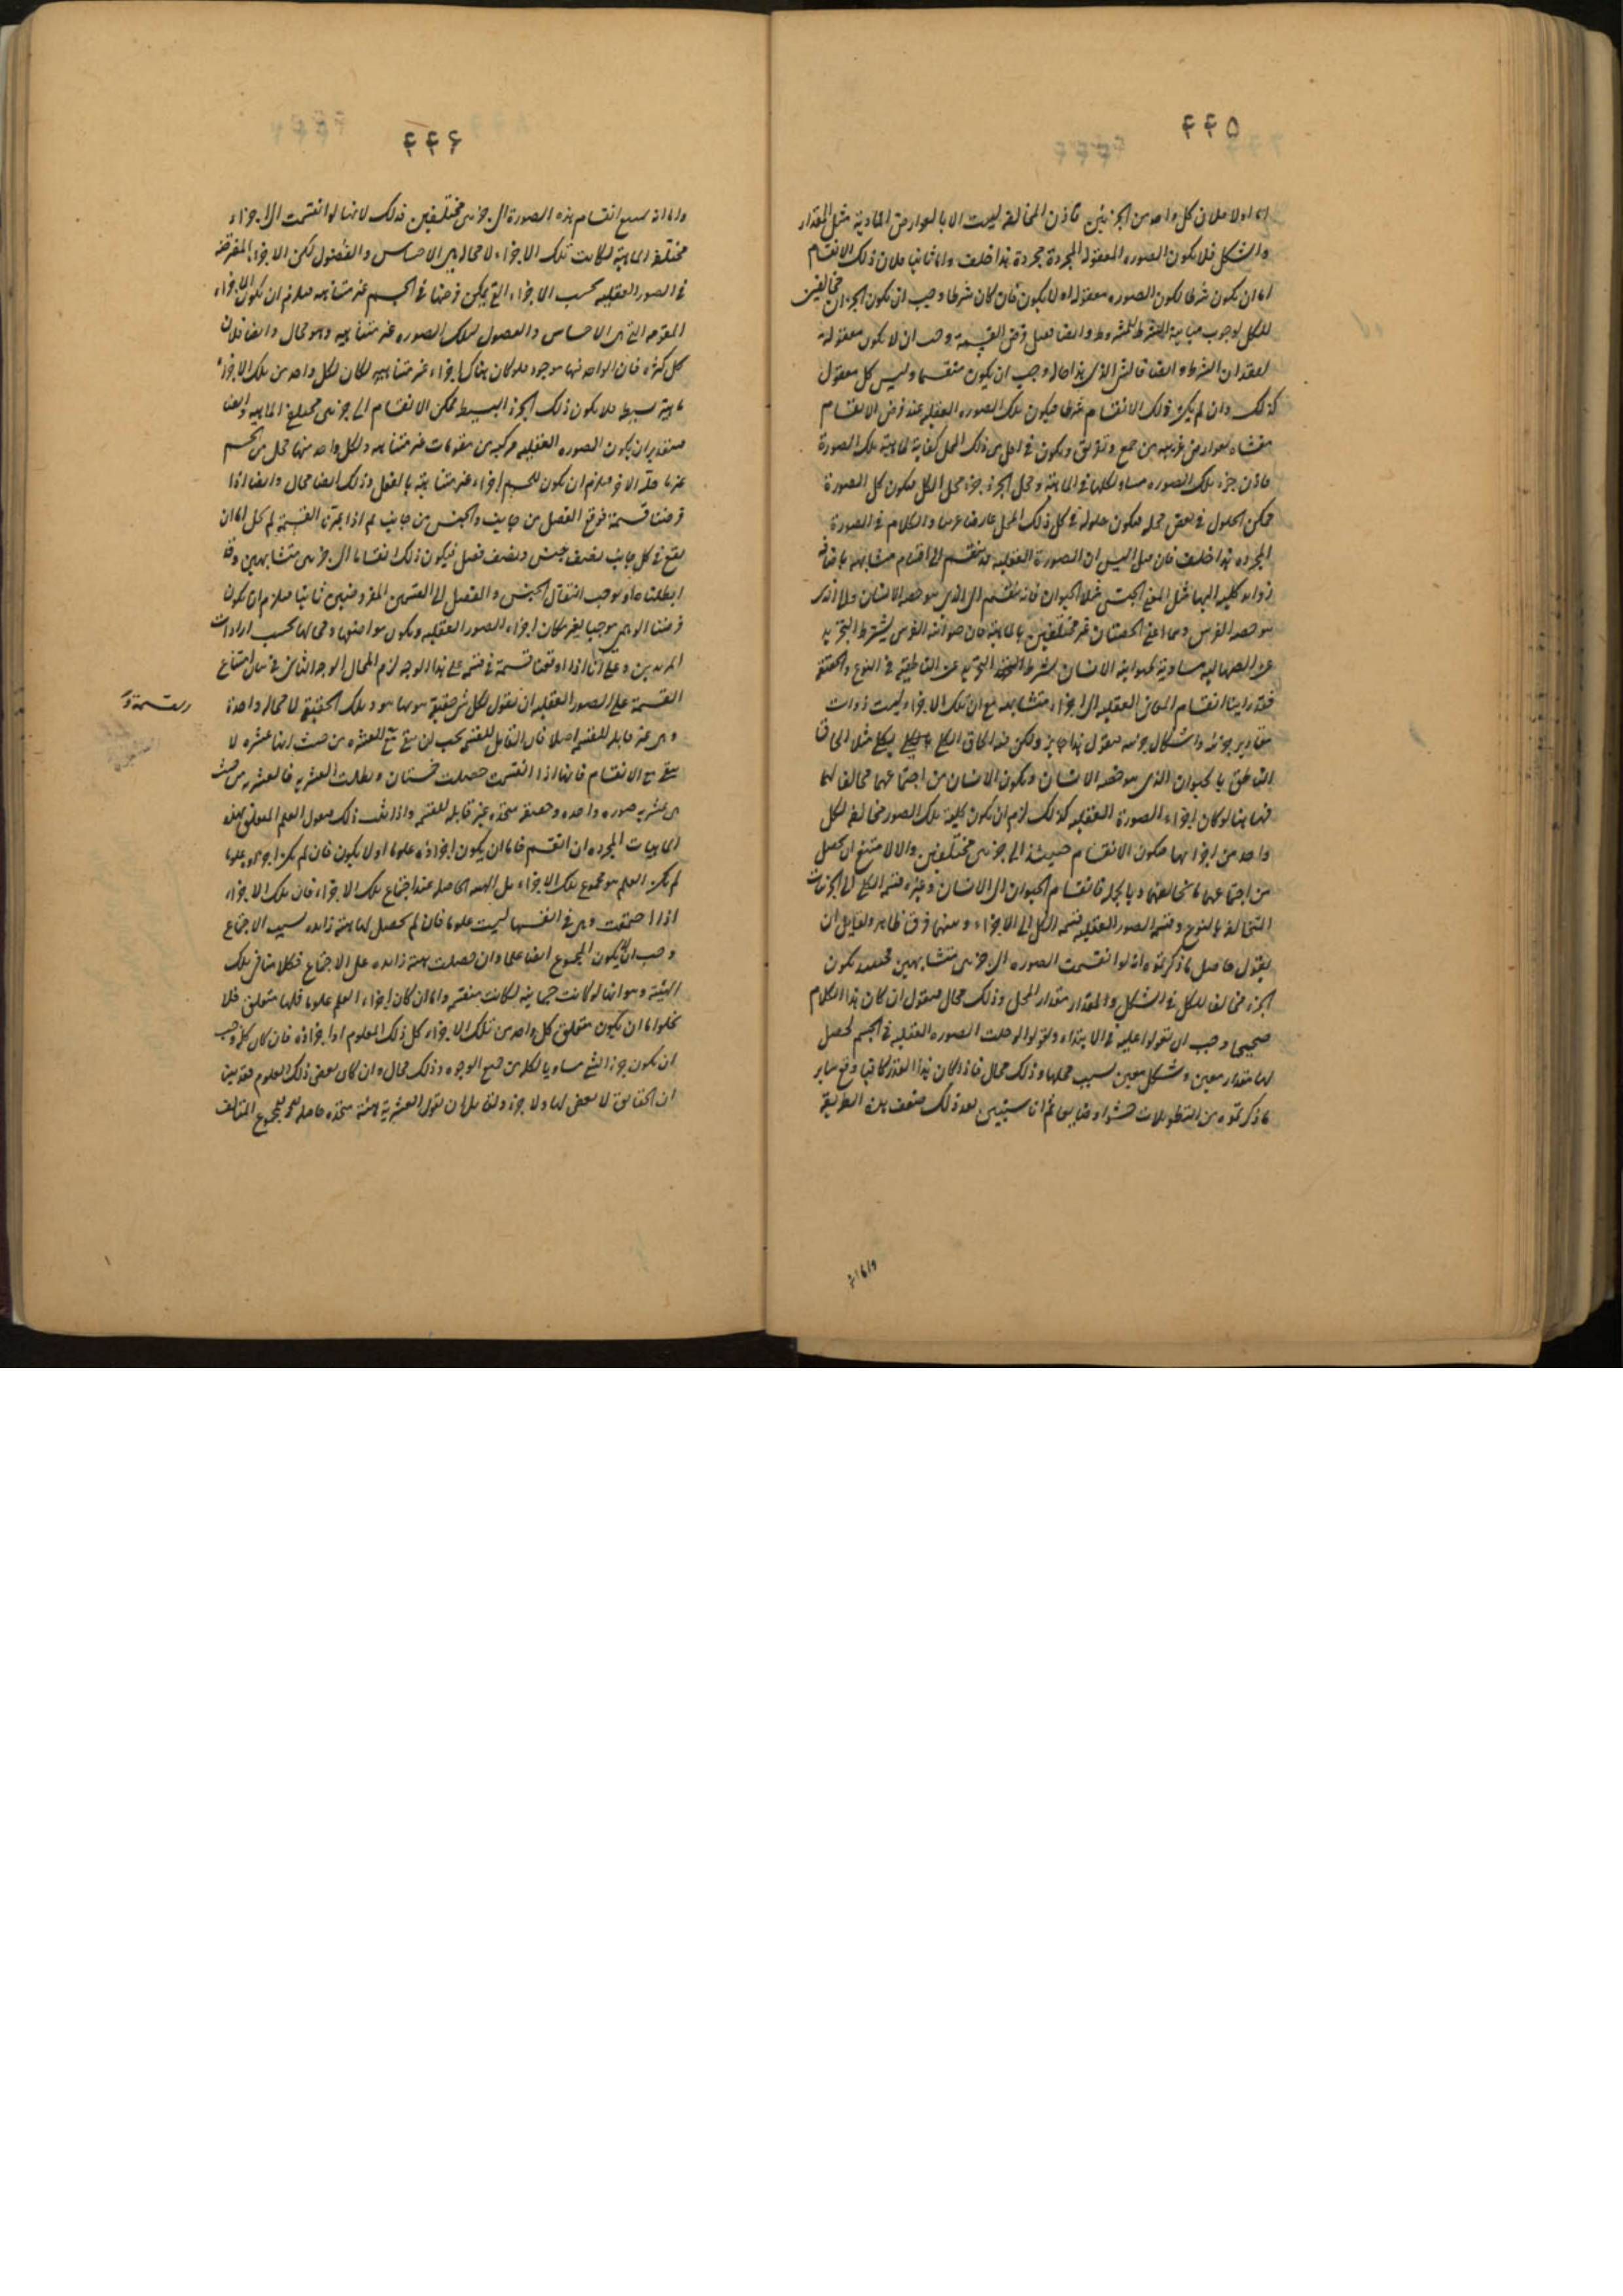 ٤٤٥
اما اولا فلان كل واحد من الجزئين فاذن المخالفة ليست الا بالعوارض المادية مثل المقدار
والشكل فلا يكون الصوره المعقوله المجردة مجردة هذا خلف واما ثانيا فلان ذلك الانقسام
اما ان يكون شرطا لكون الصوره معقوله او لا يكون فان كان شرطا وجب ان يكون الجزءان مخالفين
للكل لوجوب مباينة الشرط للمشروط وايضا فقبل فرض القسمة وجب ان لا يكون معقوله
لفقدان الشرط وايضا فالشي الذى هذا حاله وجب ان يكون منقسما وليس كل معقول
كذلك وان لم يكن ذلك الانقسام شرطا فيكون تلك الصوره العقليه عند فرض الانقسام
مغشاه بعوارض غريبه من جمع وتفريق ويكون في اقل من ذلك المحل كفاية لماهية تلك الصورة
فاذن جزء تلك الصوره مساو لكلها في الماهية ومحل الجزء جزء محل الكل فيكون كل الصورة
ممكن الحلول في بعض محله فيكون حلوله في كل ذلك المحل عارضا غريبا والكلام في الصورة
المجرده هذا خلف فان قيل اليس ان الصورة العقليه قد تنقسم الى اقسام متشابهه باضافة
زوايد كليه اليها مثل المعنى الجنسى مثلا الحيوان فانه ينقسم الى الذى هو حصه الانسان والى الذى
هو حصه الفرس وهما اعنى الحصتان غير مختلفين بالماهية فان حيوانية الفرس بشرط التجريد
عن الصهالية مساوية لحيوانية الانسان بشرط التجريد عن الناطقية في النوع والحقيقة
فقد راينا انقسام المعانى العقلية الى اجزاء متشابهه مع ان تلك الاجزاء ليست ذوات
مقادير جزئية واشكال جزئية فنقول هذا جايز ولكن هذا الحاق الكلى بكلى مثل الحاق
الناطق بالحيوان الذى هو حصه الانسان ويكون الانسان من اجتماعهما مخالفا لهما
فههنا لو كان اجزاء الصورة العقليه كذلك لزم ان يكون كلية تلك الصور مخالفة لكل
واحد من اجزائها فيكون الانقسام حينئذ الى جزئين مختلفين والا لامتنع ان يحصل
من اجتماعهما ما يخالفهما وبالجملة فانقسام الحيوان الى الانسان وغيره قسمة الكلى الى الجزئيات
المتخالفة بالنوع وقسمة الصور العقليه قسمة الكل الى الاجزاء وبينهما فرق ظاهر ولقايل ان
يقول حاصل ما ذكرتموه انه لو انقسمت الصوره الى جزئين متشابهين يكون
الجزء مخالفا للكل في الشكل والمقدار مقدار المحل وذلك محال فنقول ان كان هذا الكلام
صحيحا وجب ان تقولوا عليه في الابتداء وتقولوا لو حلت الصوره العقلية في الجسم لحصل
لها مقدار معين وشكل معين بسبب محلها وذلك محال فاذا كان هذا القدر كافيا وقع ساير
ما ذكرتموه من التطويلات حشوا وضايعا ثم انا سنبين بعد ذلك ضعف هذه الطريقة
واما انه
٤٤٦
واما انه يمتنع انقسام هذه الصورة الى جزئين مختلفين فذلك لانها لو انقسمت الى الاجزاء
مختلفة الماهية لكانت تلك الاجزاء لا محاله هى الاجناس والفصول لكن الاجزاء المفترضة
في الصور العقليه بحسب الاجزاء التى يمكن فرضها في الجسم غير متناهيه فيلزم ان يكون الاجزاء
المقومه التى هى الاجناس والفصول لتلك الصوره غير متناهيه وهو محال وايضا فلان
كل كثرة فان الواحد فيها موجود فلو كان هناك اجزاء غير متناهيه لكان لكل واحد من تلك الاجزاء
ماهية بسيطه فلا يكون ذلك الجزء البسيط ممكن الانقسام الى جزئين مختلفى الماهيه وايضا
فبتقدير ان يكون الصوره العقليه مركبه من مقومات غير متناهيه ولكل واحد منها محل من الجسم
غير ما حله الاخر فيلزم ان يكون للجسم اجزاء غير متناهية بالفعل وذلك ايضا محال وايضا اذا
فرضنا قسمة فوقع الفصل من جانب والجنس من جانب ثم اذا غيرنا القسمة لم يخل اما ان
يقع في كل جانب نصف جنس ونصف فصل فيكون ذلك انقساما الى جزئين متشابهين وقد
ابطلناه او يوجب انتقال الجنس والفصل الى القسمين المفروضين ثانيا فيلزم ان يكون
فرضنا الوهمى موجبا لغير مكان اجزاء الصور العقليه ويكون مواضعها ومحالها بحسب ارادات
المريدين وعلى انا اذا اوقعنا قسمة في قسمة على هذا الوجه لزم المحال الوجه الثانى في بيان امتناع
القسمة على الصور العقليه ان نقول لكل شى حقيقة هو بها هو وتلك الحقيقة لا محاله واحدة
وهى غير قابله للقسمه اصلا فان القابل للقسمة يجب ان يبقى مع القسمة
والعشره من حيث انها عشره لا
تبقى مع الانقسام فانها اذا انقسمت حصلت خمستان وبطلت العشريه فالعشريه من حيث
هى عشريه صوره واحده وحقيقة متحده غير قابله للقسمه واذا ثبت ذلك فنقول العلم المتعلق بهذه
الماهيات المجرده ان انقسم فاما ان يكون اجزاؤه علوما او لا يكون فان لم يكن اجزاؤه علوما
لم يكن العلم هو مجموع تلك الاجزاء بل الهيئة الحاصله عند اجتماع تلك الاجزاء فان تلك الاجزاء
اذا اجتمعت وهى في انفسها ليست علوما فان لم يحصل لها هيئة زايده بسبب الاجتماع
وجب ان لا يكون المجموع ايضا علما وان حصلت هيئة زايده على الاجتماع فكلامنا في تلك
الهيئة وهو انها لو كانت جسمانية لكانت منقسمة واما ان كان اجزاء العلم علوما فلها متعلق فلا
يخلو اما ان يكون متعلق كل واحد من تلك الاجزاء كل ذلك المعلوم او اجزاؤه فان كان كله وجب
ان يكون جزء الشى مساويا لكله من جميع الوجوه وذلك محال وان كان بعض ذلك المعلوم فقد بين
ان الحقايق لا بعض لها ولا جزء ولقايل ان يقول العشرية هيئة متحده حاصله لمجموع المتالف